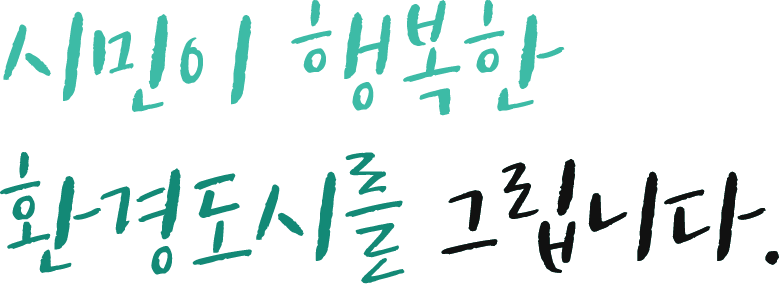 시민이 행복한
환경도시를 그립니다.